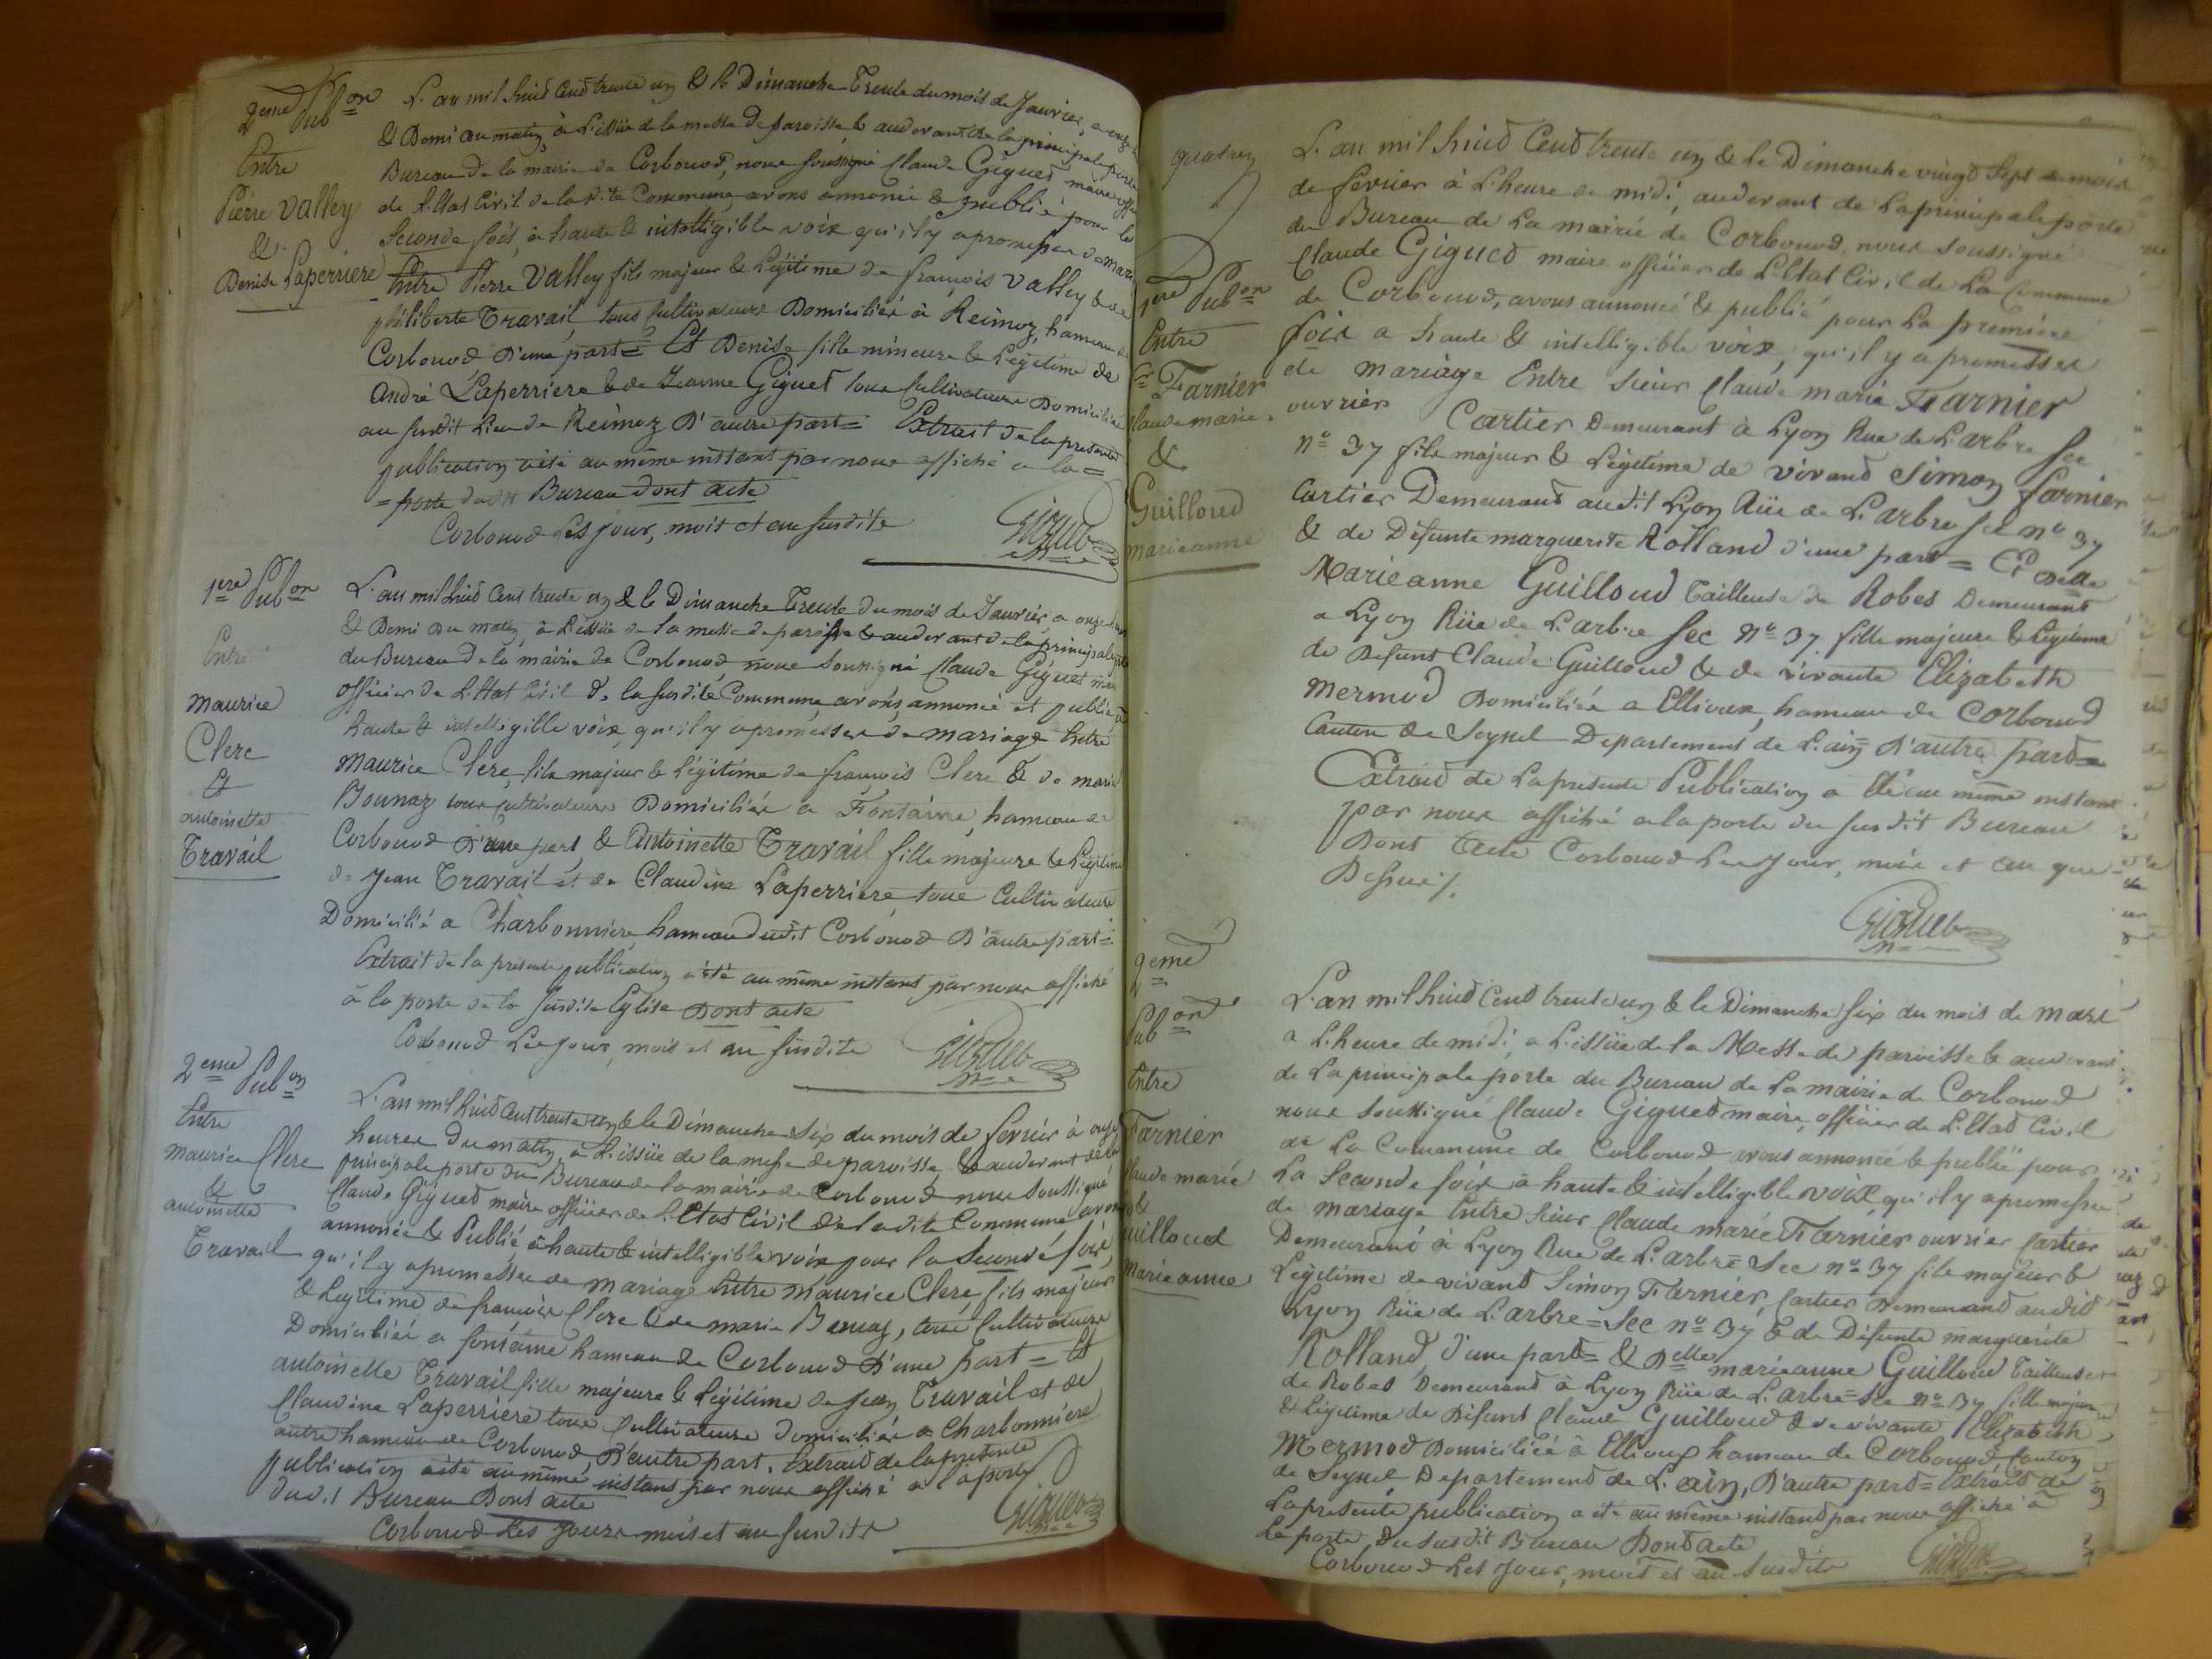 2eme Pub on
Entre
Pierre Valley
&
Denise Laperriere
L'an mil huit Cent trente un & le Dimanche Trente du mois de Janvier, a onze
& Demi du matin, à L'issüe de la messe de paroisse & au devant de la principale porte
Bureau de la mairie de Corbonod, nous soussigné Claude Giguet maire off
de L'Etat Civil de la dite Commune, avons annoncé & publié pour la
Seconde fois, à haute & intelligible voix qu'il y a promesse de mari
Entre Pierre Valley fils majeur & Légitime de françois Valley & de
philiberte Travail, tous Cultivateurs Domiciliés à Reimoz, hameau de
Corbonod D'une part = Et Denise fille mineure & Légitime de
André Laperriere & de Jeanne Giguet tous Cultivateurs Domiciliés
au susdit Lieu de Reimoz D'autre part = Extrait de la presente
publication a été au même instant par nous affiché a la =
= porte dudit Bureau dont acte
Corbonod Les jour, mois et an susdits
Giguet
1ere Pub on
Entre
Maurice
Clerc
Et
antoinette
Travail
L'an mil huit Cent trente un & le Dimanche Trente du mois de Janvier, a onze heures
& Demi du matin, à L'issüe de la messe de paroisse & au devant de la principale porte
du Bureau de la mairie de Corbonod nous soussigné Claude Giguet maire
officier de L'Etat Civil de la susdite Commune, avons annoncé et publié à
haute & intelligible voix, qu'il y a promesses de mariage Entre
Maurice Clerc, fils majeur & Légitime de françois Clerc & de marie
Bounaz tous cultivateurs Domiciliés a Fontaine, hameau de
Corbonod D'une part & Antoinette Travail fille majeure & Légitime
de Jean Travail et de Claudine Laperriere tous Cultivateurs
Domicilié a Charbonniere, hameau dudit Corbonod D'autre part =
Extrait de la présente publication a été au même instant par nous affiché
à la porte de la susdite Eglise Dont acte
Corbonod Les jour, mois et an susdits
Giguet
2eme Pub on
Entre
maurice Clerc
&
antoinette
Travail
L'an mil huit Cent trente un & le Dimanche Six du mois de fevrier à onze
heures du matin, à L'issüe de la messe de paroisse, & au devant de la
principale porte du Bureau de la mairie de Corbonod nous soussigné
Claude Giguet maire officier de L'Etat Civil de la dite Commune avons
annoncée & Publié à haute & intelligible voix pour la Seconde fois,
qu'il y a promesses de mariage Entre Maurice Clerc, fils majeur
& Légitime de françois Clerc & de marie Bounaz, tous Cultivateurs
Domiciliés a fontaine hameau de Corbonod D'une part = Et
antoinette Travail fille majeure & Légitime de Jean Travail et de
Claudine Laperriere tous Cultivateurs Domiciliés a Charbonniere
autre hameau de Corbonod, D'autre part. Extrait de la présente
publication a été au même instant par nous affiché a la porte
dudit Bureau Dont acte
Corbonod Les jours mois et an susdits
Giguet
quatre
1ere Pub on
Entre
Sr Farnier
Claude marie
&
Guilloud
marieanne
L'an mil huit Cent trente un & le Dimanche vingt Sept du mois
de fevrier à L'heure de midi, au devant de la principale porte
du Bureau de La mairie de Corbonod, nous soussigné
Claude Giguet maire officier de L'Etat Civil de La Commune
de Corbonod, avons annoncé & publié pour La première
fois a haute & intelligible voix, qu'il y a promesses
de mariage Entre Sieur Claude marie Farnier
ouvrier Cartier Demeurant à Lyon Rue de L'arbre Sec
No 37 fils majeur & Légitime de vivant Simon farnier
Cartier Demeurant audit Lyon Rüe de L'arbre Sec no 37
& de Défunte marguerite Rolland d'une part = Et Delle
Marieanne Guilloud Tailleuse de Robes Demeurant
a Lyon Rüe de L'arbre Sec No 37. fille majeure & Légitime
de Défunt Claude Guilloud & de vivante Elizabeth
Mermod Domiciliée a Ellioux, hameau de Corbonod
Canton de Seyssel Departement de L'ain D'autre part =
Extrait de La presente Publication a été au même instant
par nous affiché a la porte du susdit Bureau
Dont acte Corbonod Les jour, mois et an que =
Dessus /.
Giguet
2eme
Pub on
Entre
Farnier
Claude marie
&
Guilloud
marieanne
L'an mil huit Cent trente un & le Dimanche Six du mois de mars
a L'heure de midi, a L'issüe de la Messe de paroisse & au devant
de La principale porte du Bureau de La mairie de Corbonod
nous soussigné Claude Giguet maire, officier de L'Etat Civil
de La Commune de Corbonod avons annoncé & publié pour
La Seconde fois à haute & intelligible voix, qu'il y a promesse
de mariage Entre Sieur Claude marie Farnier ouvrier Cartier
Demeurant à Lyon Rue de L'arbre = Sec no 37 fils majeur &
Légitime de vivant Simon Farnier, Cartier Demeurant audit
Lyon Rüe de L'arbre = Sec no 37 & de Défunte marguerite
Rolland, d'une part = & Delle marieanne Guilloud Tailleuse
de Robes Demeurant à Lyon Rüe de L'arbre = Sec No 37 fille majeure
& Légitime de Défunt Claude Guilloud & de vivante Elizabeth
Mermod Domiciliée à Ellioux hameau de Corbonod, Canton
de Seyssel Departement de L'ain, D'autre part = Extrait de
La présente publication a été au même instant par nous affiché à
La porte du susdit Bureau Dont acte
Corbonod Les jour, mois et an susdits
Giguet